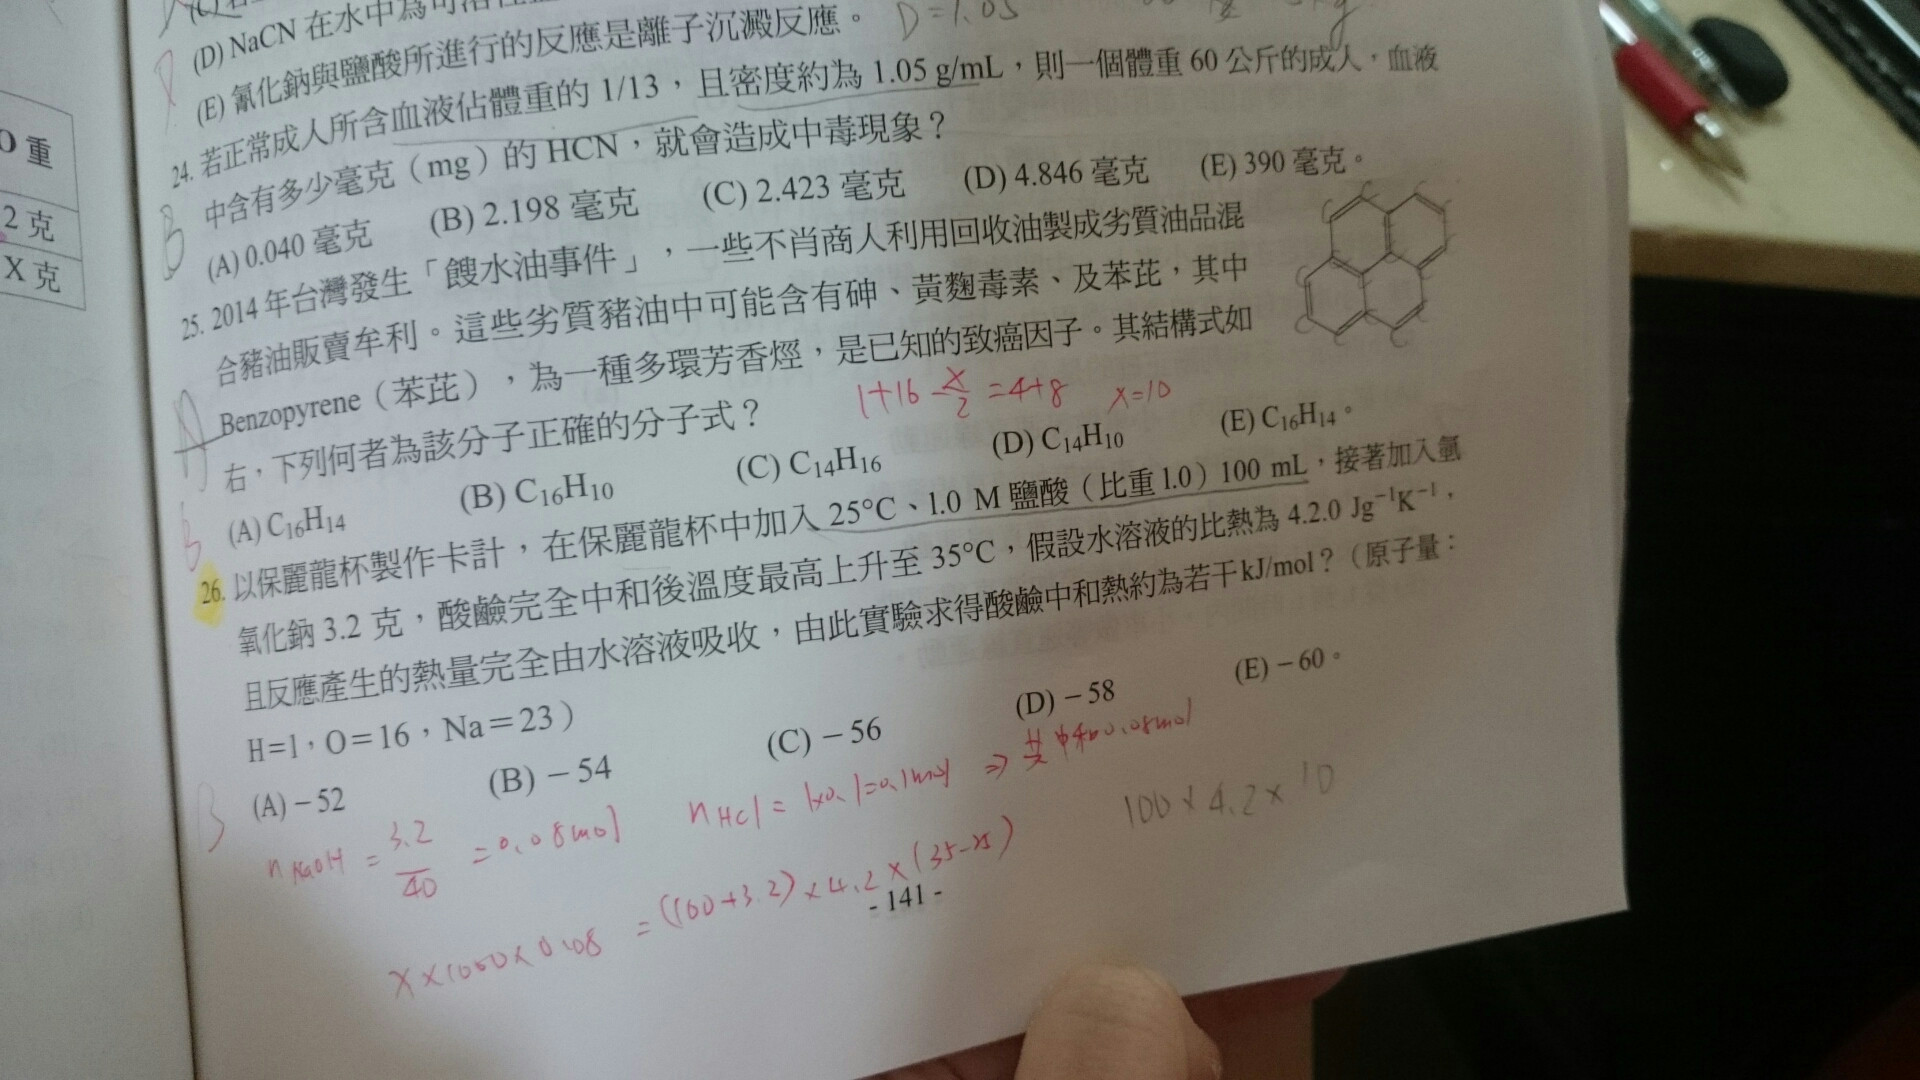 (D) NaCN 在水中為可溶性
(E) 氰化鈉與鹽酸所進行的反應是離子沉澱反應。 D=1.05
24. 若正常成人所含血液佔體重的 1/13,且密度約為 1.05 g/mL,則一個體重 60 公斤的成人,血液
中含有多少毫克(mg)的 HCN,就會造成中毒現象?
B
(A) 0.040 毫克 (B) 2.198 毫克 (C) 2.423 毫克 (D) 4.846 毫克 (E) 390 毫克。
25. 2014 年台灣發生「餿水油事件」,一些不肖商人利用回收油製成劣質油品混
合豬油販賣牟利。這些劣質豬油中可能含有砷、黃麴毒素、及苯芘,其中
Benzopyrene(苯芘),為一種多環芳香烴,是已知的致癌因子。其結構式如
右,下列何者為該分子正確的分子式?
1+16-x/2=4+8 x=10
A
B
(A) C16H14 (B) C16H10 (C) C14H16 (D) C14H10 (E) C16H14。
26. 以保麗龍杯製作卡計,在保麗龍杯中加入 25°C、1.0 M 鹽酸(比重 1.0)100 mL,接著加入氫
氧化鈉 3.2 克,酸鹼完全中和後溫度最高上升至 35°C,假設水溶液的比熱為 4.2.0 Jg⁻¹K⁻¹,
且反應產生的熱量完全由水溶液吸收,由此實驗求得酸鹼中和熱約為若干 kJ/mol?(原子量:
H=1,O=16,Na=23)
B
(A) −52 (B) −54 (C) −56 (D) −58 (E) −60。
n NaOH = 3.2/40 = 0.08mol n HCl = 1x0.1=0.1mol ⇒ 共中和0.08mol
x×1000×0.08 = (100+3.2)×4.2×(35-25)
100×4.2×10
- 141 -
O 重
2 克
X 克